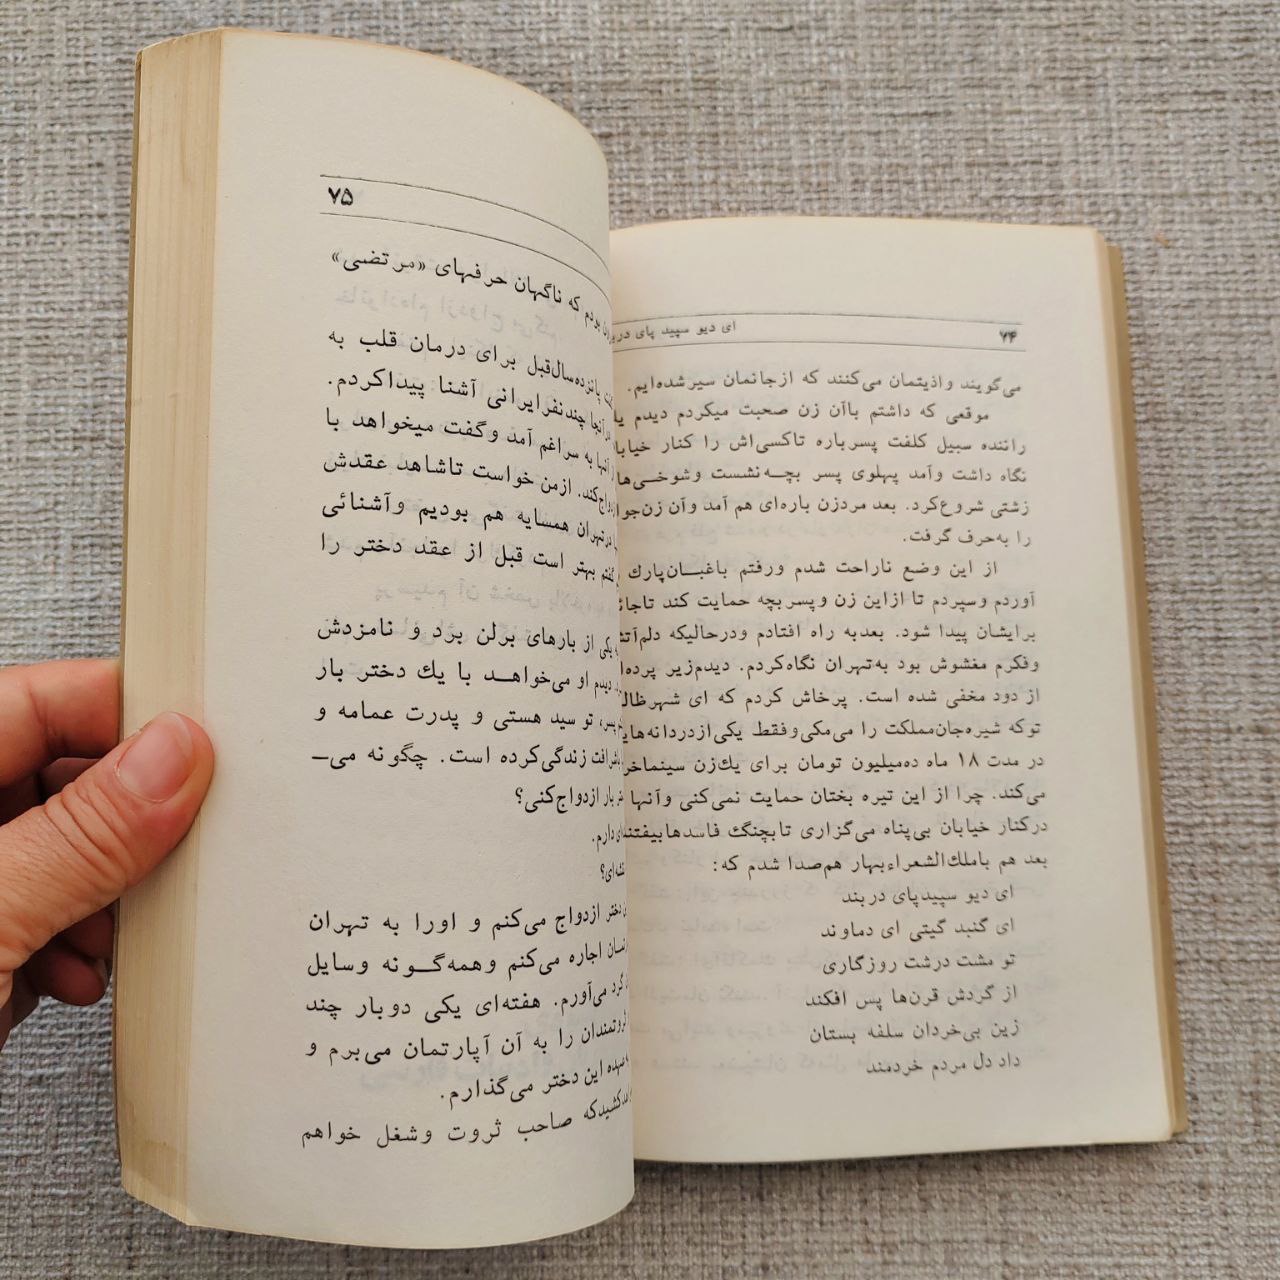 ۷۴
ای دیو سپید پای در
می‌گویند واذیتمان می‌کنند که ازجانمان سیرشده‌ایم.
موقعی که داشتم باآن زن صحبت میکردم دیدم
راننده سبیل کلفت پسرباره تاکسی‌اش را کنار
نگاه داشت وآمد پهلوی پسر بچه‌نشست وشوخی‌ها
زشتی شروع‌کرد. بعد مردزن باره‌ای هم آمد وآن
را به‌حرف گرفت.
از این وضع ناراحت شدم ورفتم باغبان‌پارك
آوردم وسپردم تا ازاین زن وپسربچه حمایت کند
برایشان پیدا شود. بعدبه راه افتادم ودرحالیکه
وفکرم مغشوش بود به‌تهران نگاه‌کردم. دیدم‌زیر
از دود مخفی شده است. پرخاش کردم که ای
توکه شیره‌جان‌مملکت را می‌مکی‌وفقط یکی‌ازدردانه‌هایت
در مدت ۱۸ ماه ده‌میلیون تومان برای یك‌زن
می‌کند. چرا از این تیره بختان حمایت نمی‌کنی وآنها
درکنار خیابان بی‌پناه می‌گزاری تابچنگ فاسدهابیفتند
بعد هم باملك‌الشعراءبهار هم‌صدا شدم که:
ای دیو سپیدپای دربند
ای گنبد گیتی ای دماوند
تو مشت درشت روزگاری
از گردش قرن‌ها پس افکند
زین بی‌خردان سلفه بستان
داد دل مردم خردمند
۷۵
بودم که ناگهان حرفهای «مرتضی»
پانزده‌سال‌قبل برای درمان قلب به
درآنجا چندنفرایرانی آشنا پیداکردم.
آنها به سراغم آمد وگفت میخواهد با
ازمن خواست تاشاهد عقدش
درتهران همسایه هم بودیم وآشنائی
گفتم بهتر است قبل از عقد دختر را
یکی از بارهای برلن برد و نامزدش
دیدم او می‌خواهد با یك دختر بار
پسر، تو سید هستی و پدرت عمامه و
زندگی‌کرده است. چگونه می‌ـ
بار ازدواج‌کنی؟
دارم.
دختر ازدواج می‌کنم و اورا به تهران
اجاره می‌کنم وهمه‌گونه وسایل
می‌آورم. هفته‌ای یکی دوبار چند
را به آن آپارتمان می‌برم و
این دختر می‌گذارم.
صاحب ثروت وشغل خواهم